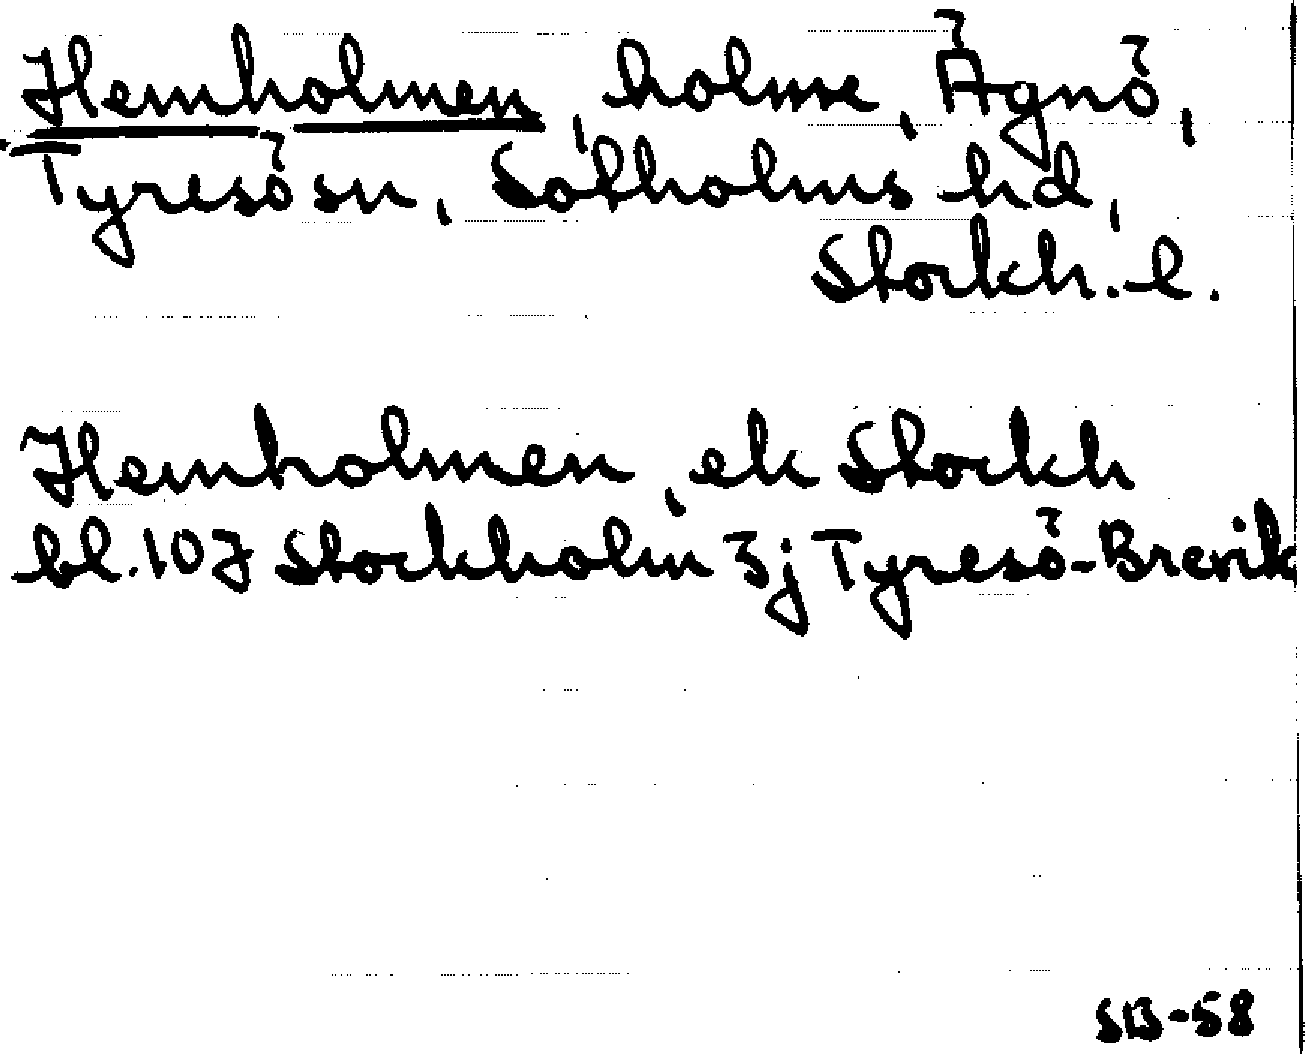 Hemholmen, holme, Ägnö,
Tyresö sn, Sotholms hd,
Stockh. l.
Hemholmen, ek Stockh
bl. 107 Stockholm 3j Tyresö-Brevik
SB-58